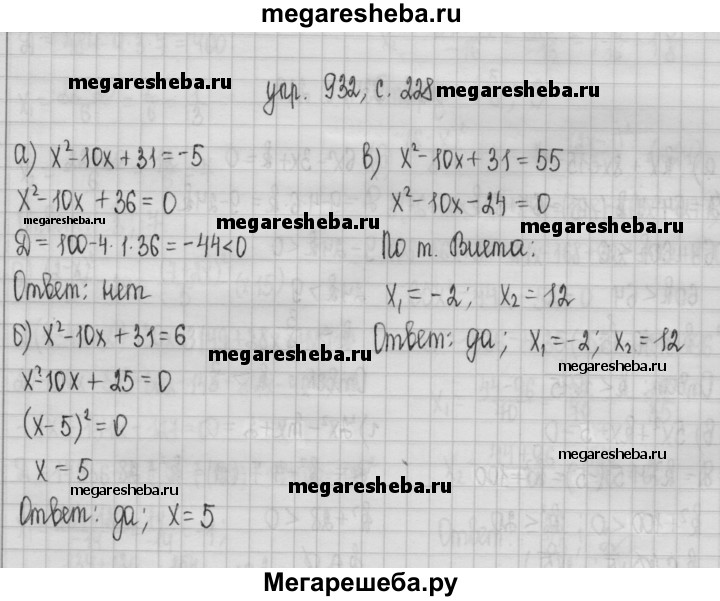 megaresheba.ru
megaresheba.ru
упр. 932, с. 228 megaresheba.ru
а) x²-10x+31=-5
x²-10x+36=0
megaresheba.ru
Д=100-4·1·36=-44<0
Ответ: нет
б) x²-10x+31=6
x²-10x+25=0
(x-5)²=0
x=5
megaresheba.ru
Ответ: да; x=5
в) x²-10x+31=55
x²-10x-24=0
megaresheba.ru
megaresheba.ru
По т. Виета:
x₁=-2; x₂=12
Ответ: да; x₁=-2; x₂=12
megaresheba.ru
megaresheba.ru
megaresheba.ru
megaresheba.ru
Мегарешеба.ру